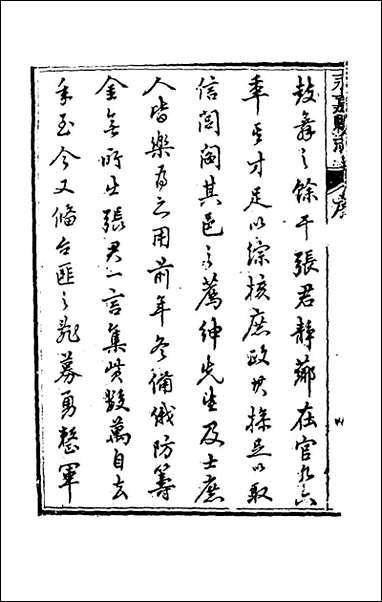 永嘉縣志
序
鼓舞之餘干張君靜薌在官九六
年其才足以綜核庶政其操足以取
信閭閻其邑之薦紳先生及士庶
人皆樂為之用前年冬備俄防籌
金無所出張君一言集貲數萬自去
年至今又備台匪之亂募勇整軍